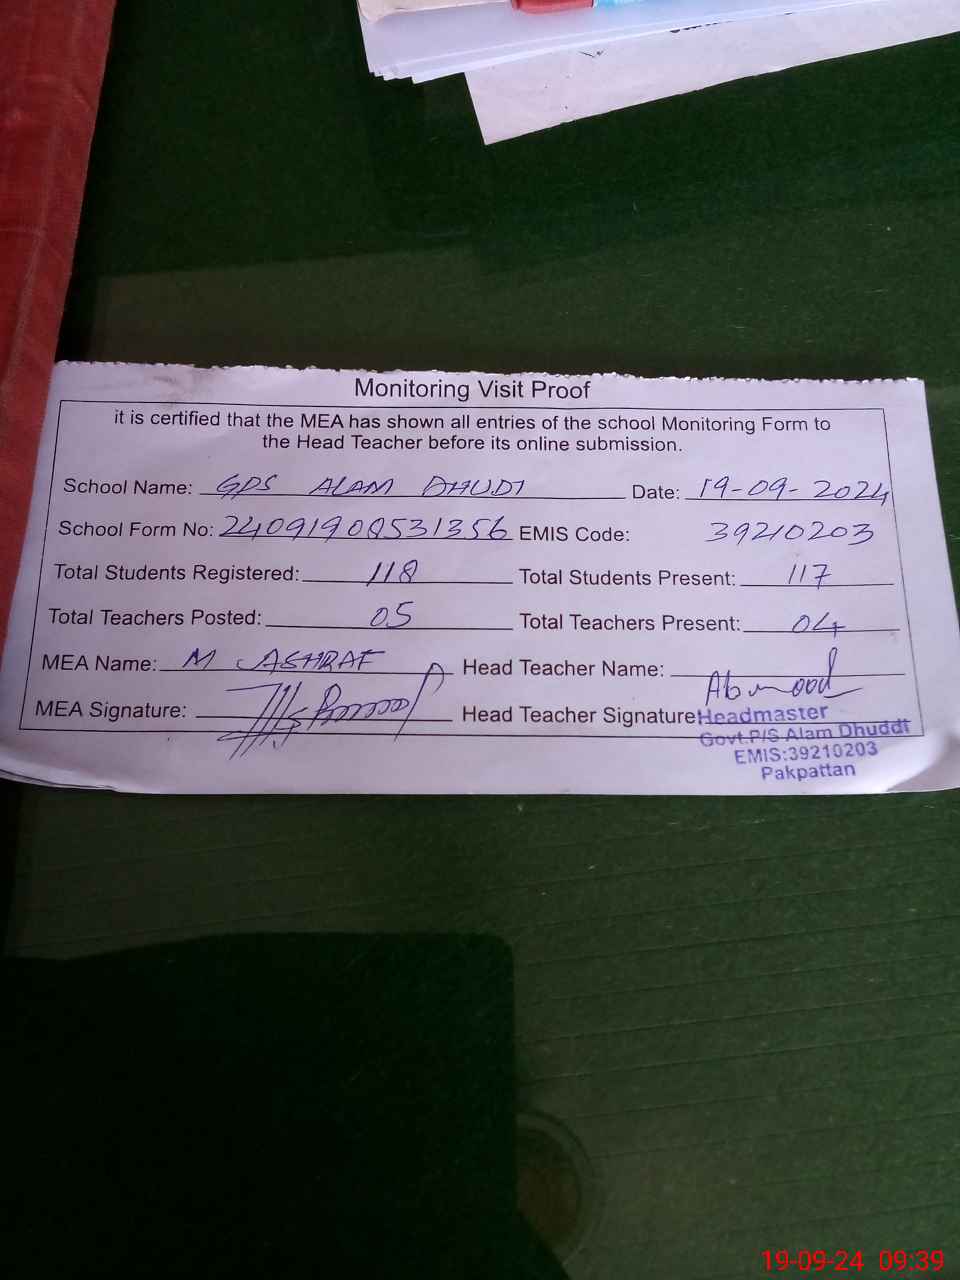 Monitoring Visit Proof
it is certified that the MEA has shown all entries of the school Monitoring Form to
the Head Teacher before its online submission.
School Name: GPS ALAM DHUDI Date: 19-09-2024
School Form No: 24091908531356 EMIS Code: 39210203
Total Students Registered: 118 Total Students Present: 117
Total Teachers Posted: 05 Total Teachers Present: 04
MEA Name: M ASHRAF Head Teacher Name:
MEA Signature: Head Teacher Signature
Headmaster
Govt.P/S Alam Dhuddi
EMIS:39210203
Pakpattan
19-09-24 09:39